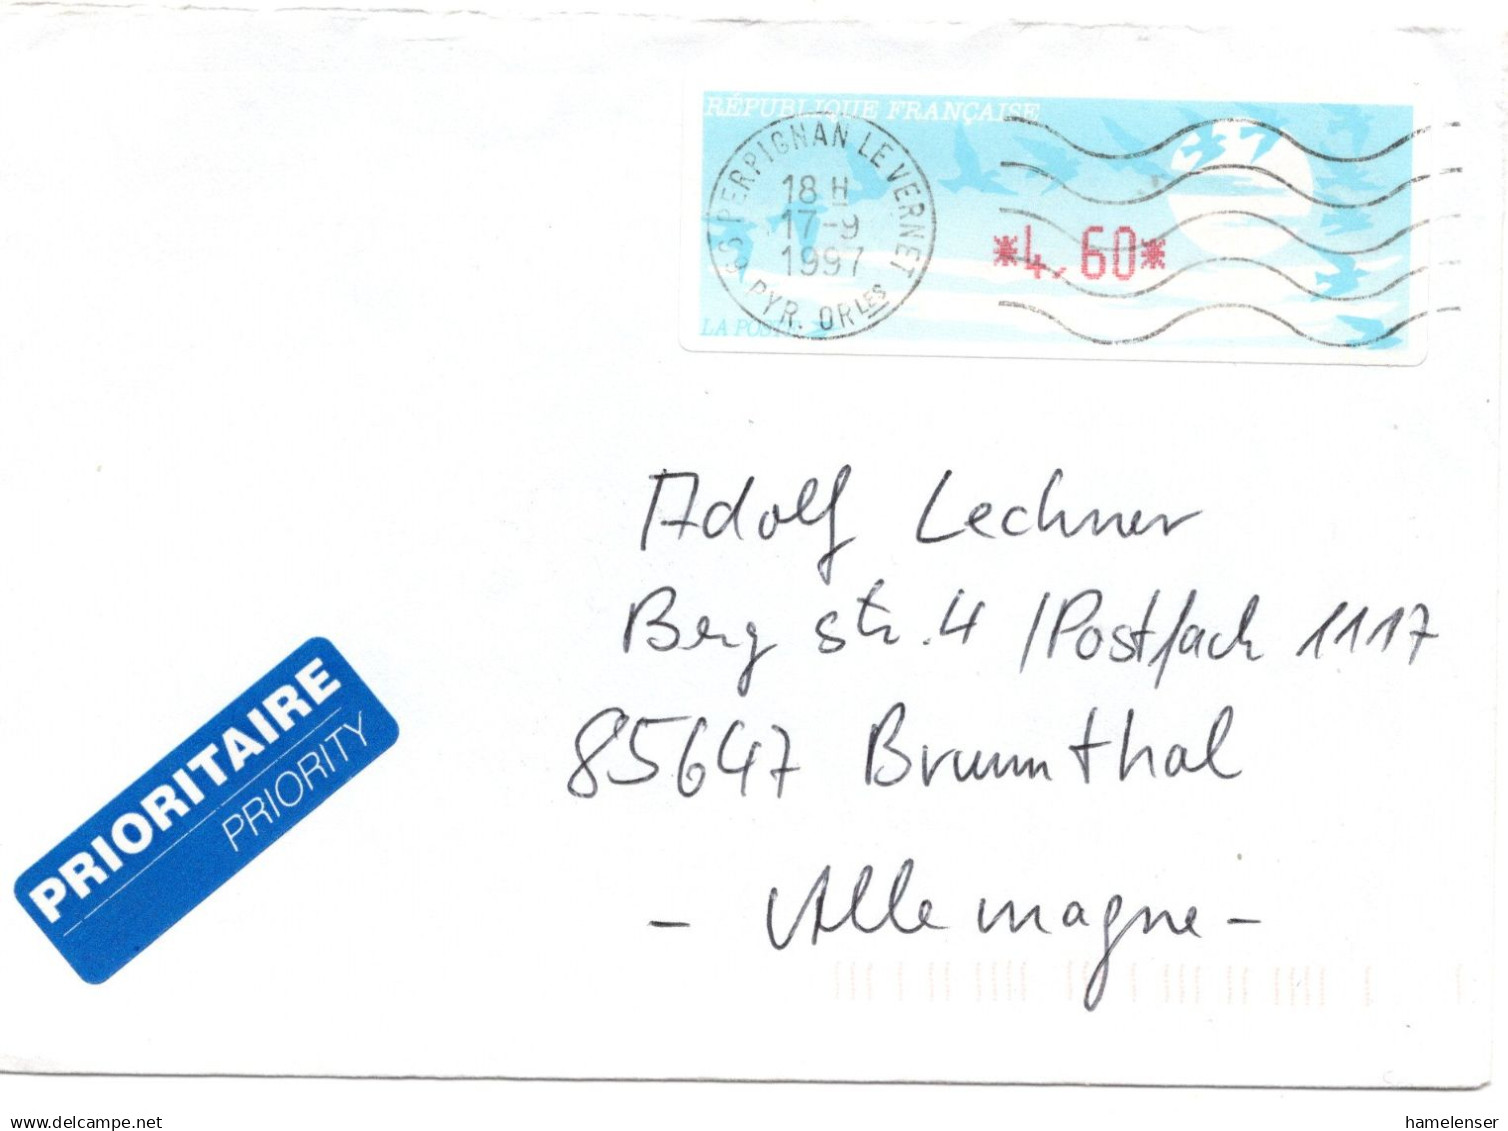 RÉPUBLIQUE FRANÇAISE
66 PERPIGNAN LE VERNET
18 H
17-9
1997
PYR. ORLES
*4,60*
LA POSTE
Adolf Lechner
Berg str. 4 / Postfach 1117
85647 Brunnthal
- Allemagne -
PRIORITAIRE
PRIORITY
www.delcampe.net
hamelenser